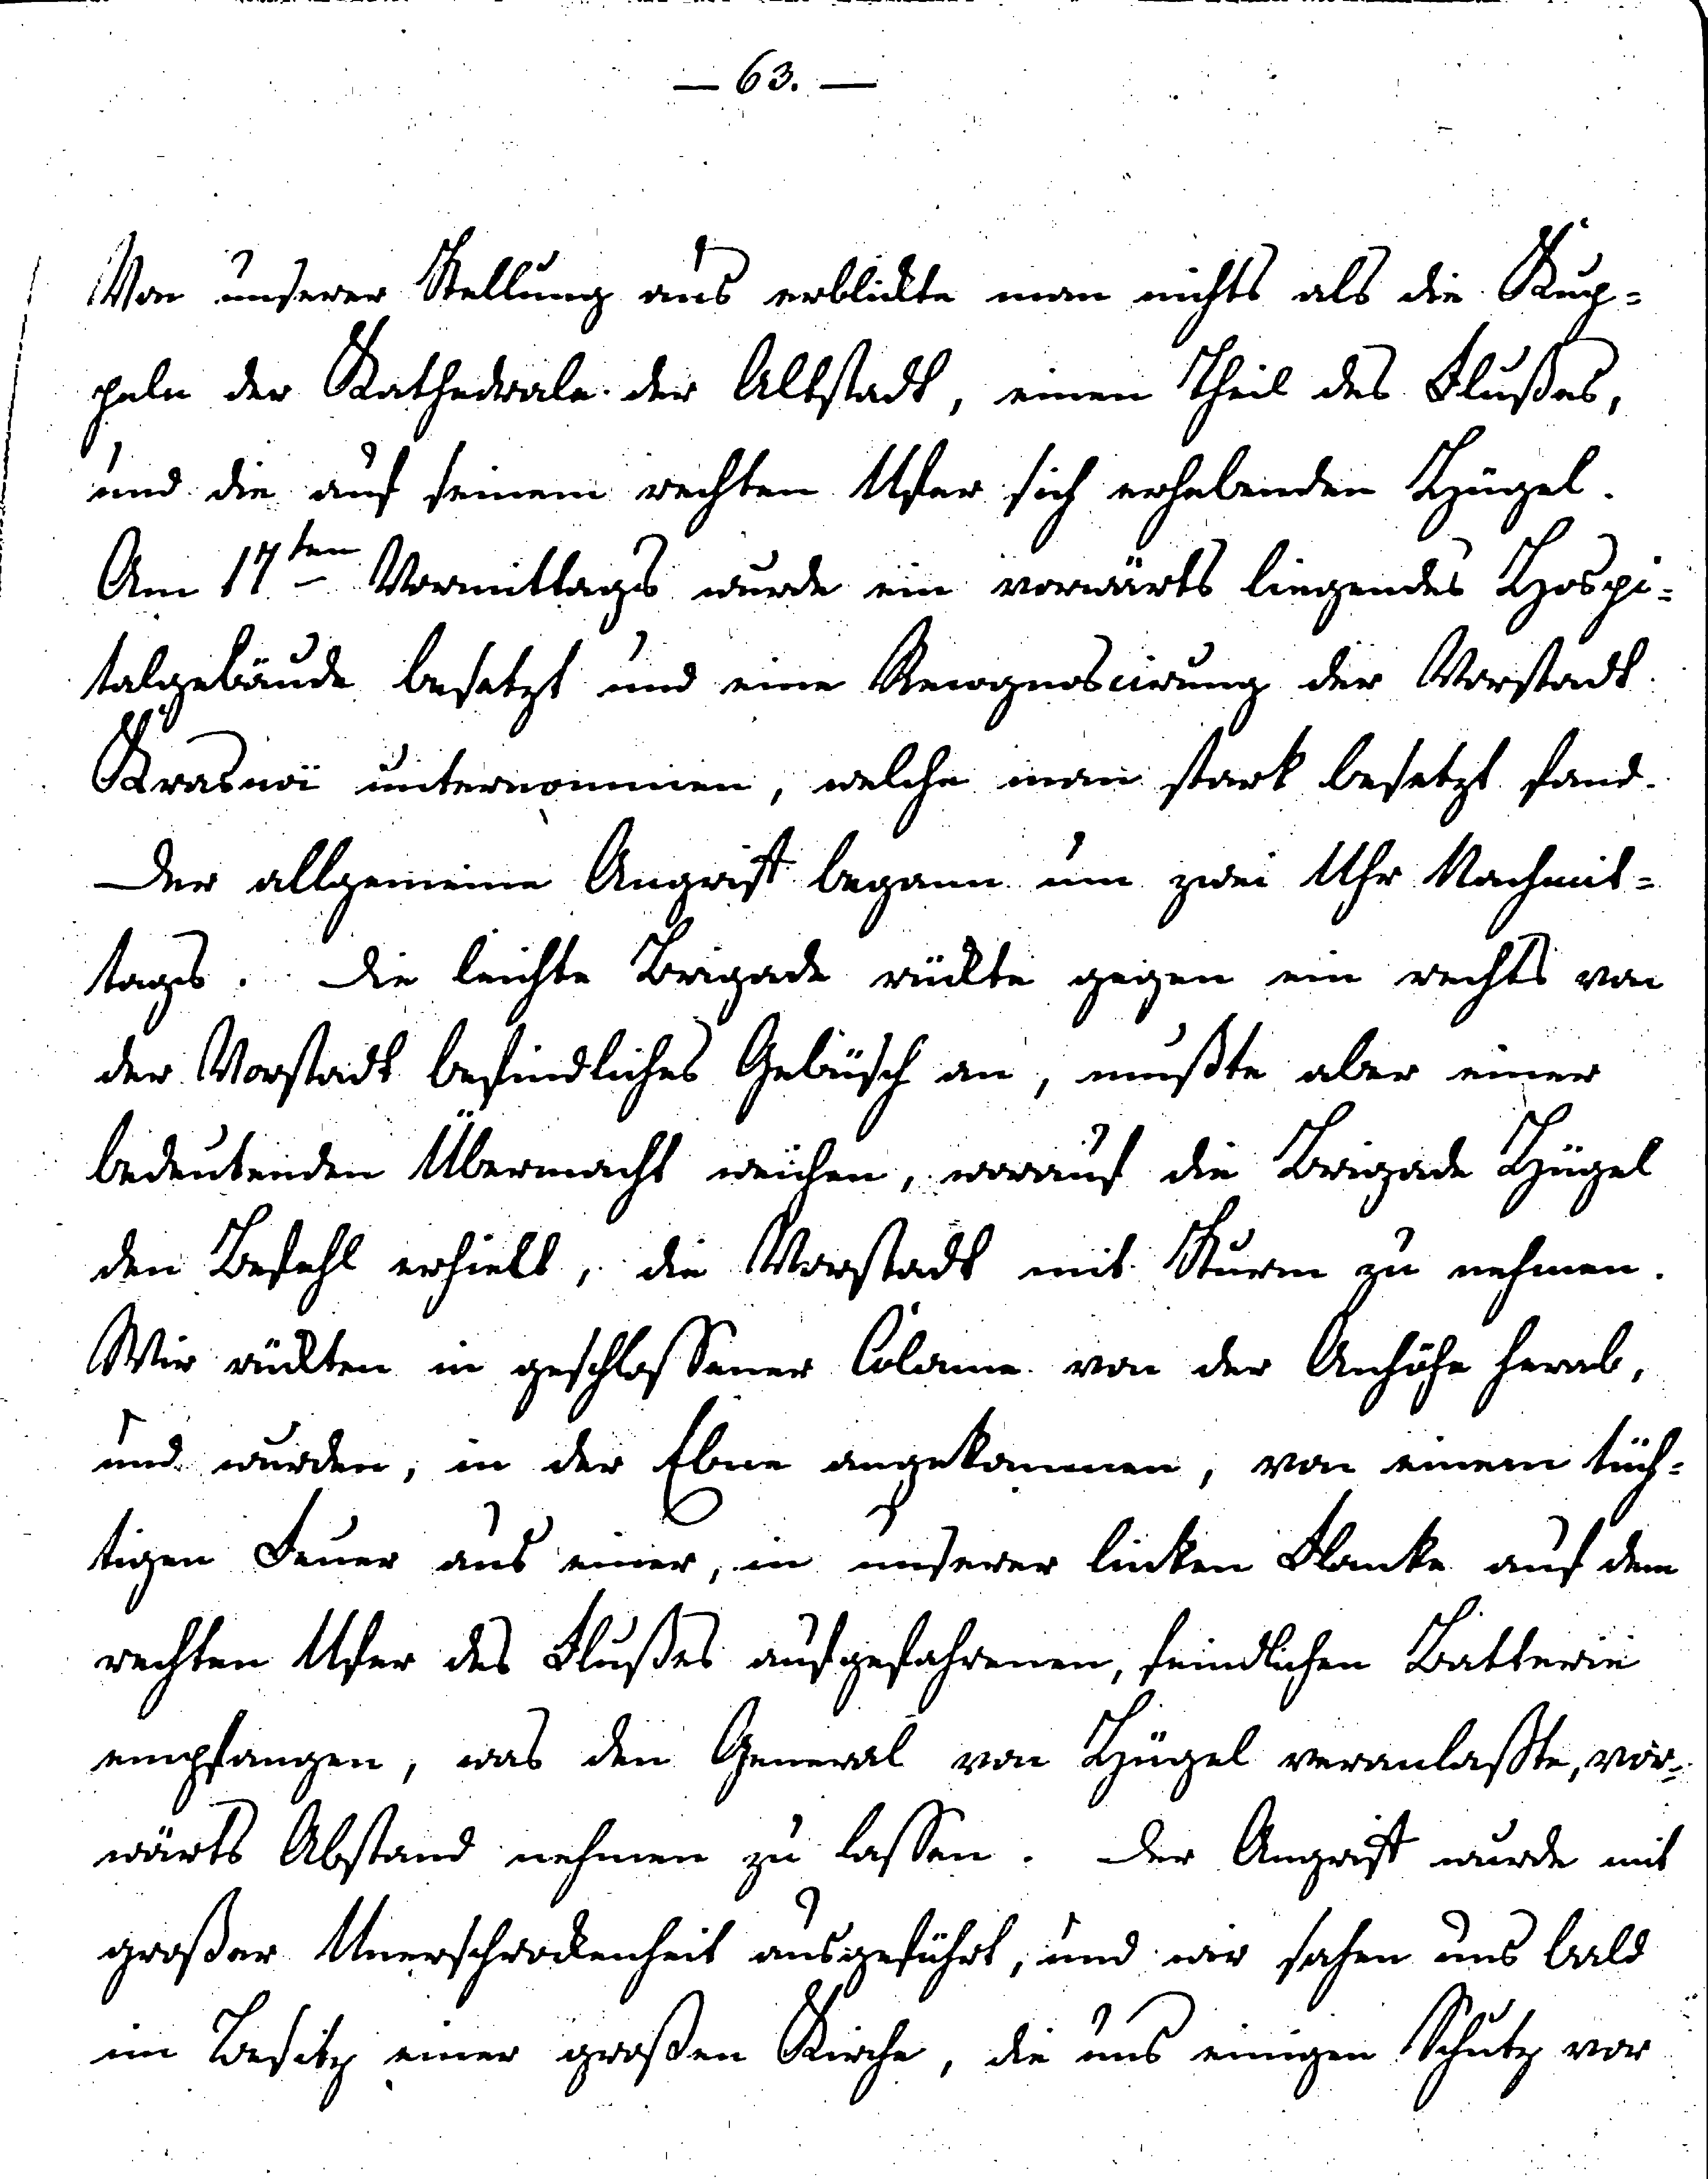 — 63. —
Von unserer Stellung aus erblickte man nichts als die Kup=
peln der Kathedrale der Altstadt, einen Theil des Flußes,
und die auf seinem rechten Ufer sich erhebenden Hügel.
Am 17ten Vormittags wurde ein vorwärts liegendes Hospi=
talgebäude besetzt und eine Recognoscirung der Vorstadt
Krasnoi unternommen, welche man stark besetzt fand.
Der allgemeine Angriff begann um zwei Uhr Nachmit=
tags. Die leichte Brigade rückte gegen ein rechts von
der Vorstadt befindliches Gebüsch an, mußte aber einer
bedeutenden Übermacht weichen, worauf die Brigade Hügel
den Befehl erhielt, die Vorstadt mit Sturm zu nehmen.
Wir rückten in geschlossener Colonne von der Anhöhe herab,
und wurden, in der Ebne angekommen, von einem tüch=
tigen Feuer aus einer, in unserer linken Flanke auf dem
rechten Ufer des Flußes aufgefahrenen, feindlichen Batterie
empfangen, was den General von Hügel veranlaßte, vor=
wärts Abstand nehmen zu lassen. Der Angriff wurde mit
großer Unerschrockenheit ausgeführt, und wir sahen uns bald
im Besitz einer großen Kirche, die uns einigen Schutz vor